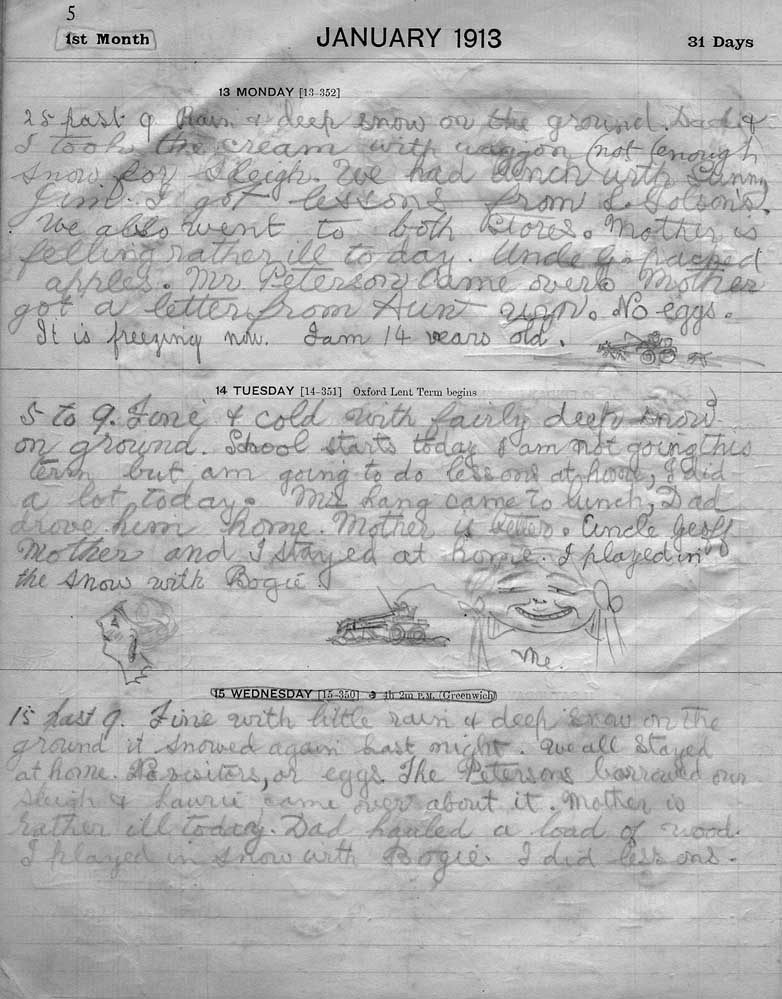 5
1st Month
JANUARY 1913
31 Days
13 MONDAY [13-352]
25 past 9 Rain & deep snow on the ground. Dad &
I took the cream with waggon (not enough
snow for sleigh. We had lunch with Sunny
Jim. I got lessons from L. Golson's.
We also went to both stores. Mother is
felling rather ill to day. Uncle G. packed
apples. Mr Peterson came over. Mother
got a letter from Aunt No eggs.
It is freezing now. I am 14 years old.
14 TUESDAY [14-351] Oxford Lent Term begins
5 to 9. Fine & cold with fairly deep snow
on ground. School starts today I am not going this
term but am going to do lessons at home, I did
a lot today. Mr Lang came to lunch, Dad
drove him home. Mother is better. Uncle Geoff
Mother and I stayed at home. I played in
the snow with Bogie.
Me.
15 WEDNESDAY [15-350] 4h 2m P.M. (Greenwich)
15 past 9. Fine with little rain & deep snow on the
ground it snowed again last night. We all stayed
at home. No visitors, or eggs. The Petersons borrowed our
sleigh & Laurie came over about it. Mother is
rather ill today. Dad hauled a load of wood.
I played in snow with Bogie. I did lessons.